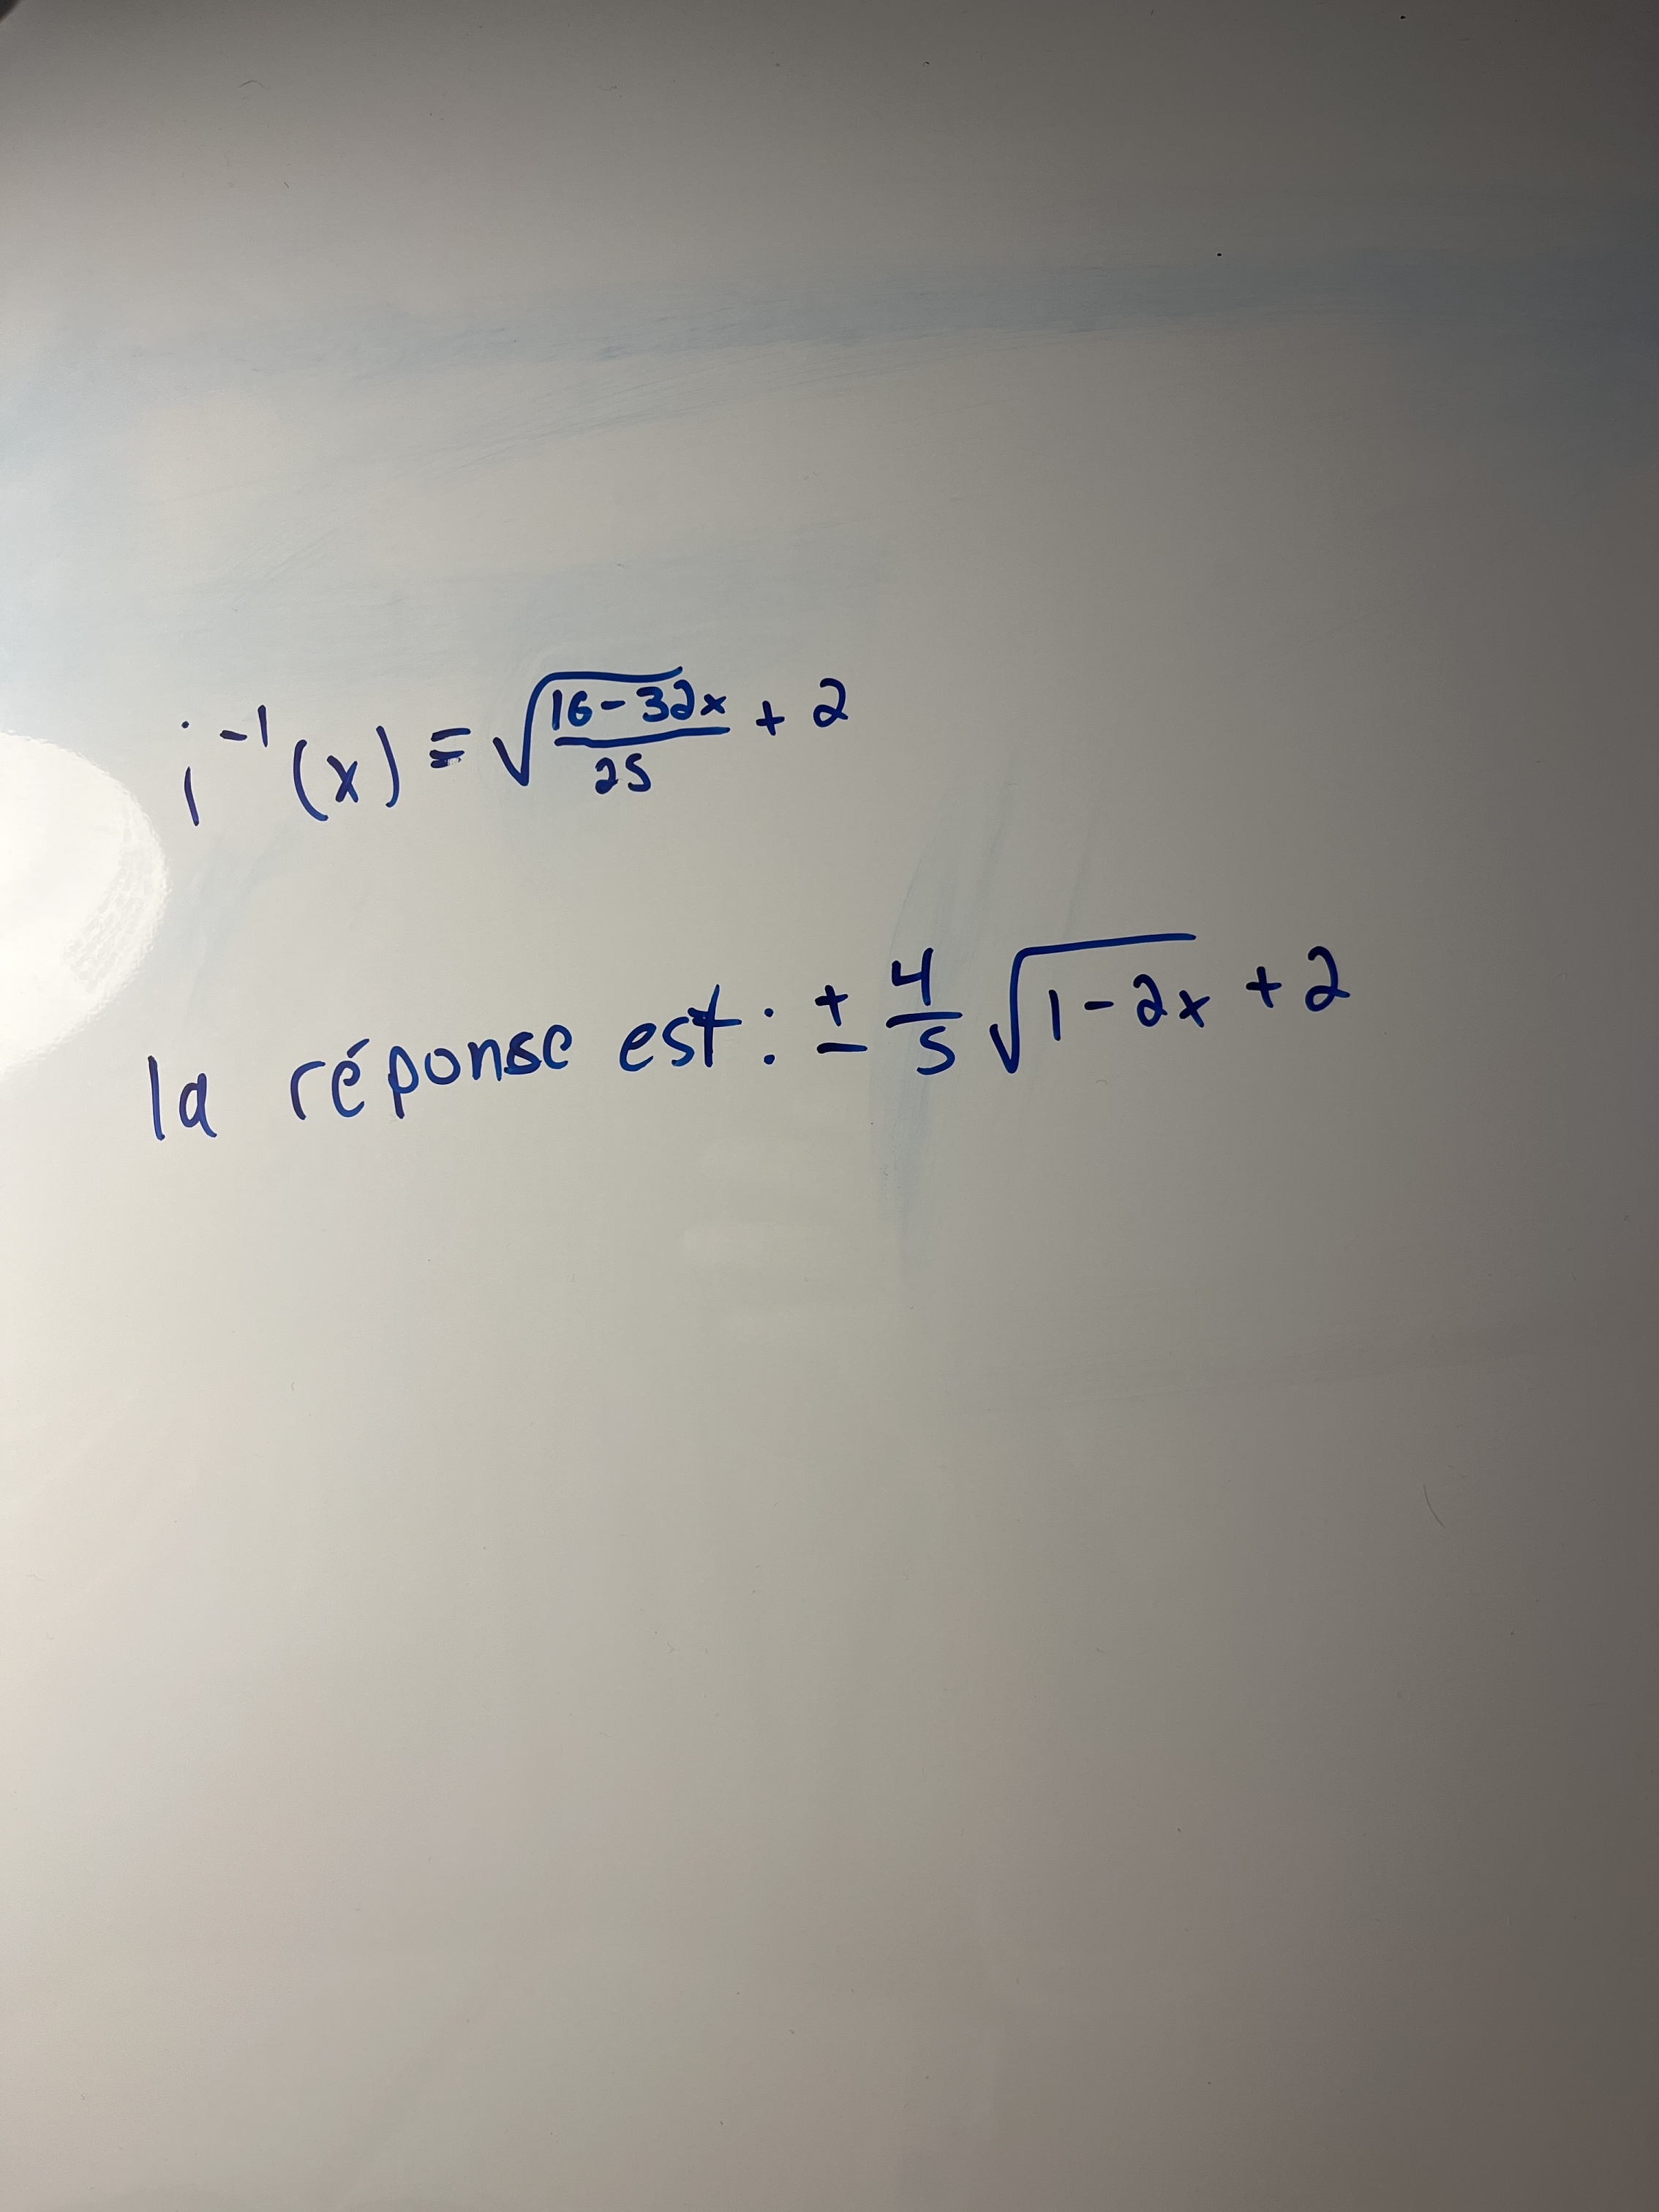 i⁻¹(x) = √((16-32x)/25) + 2
la réponse est : ± 4/5 √(1-2x) + 2